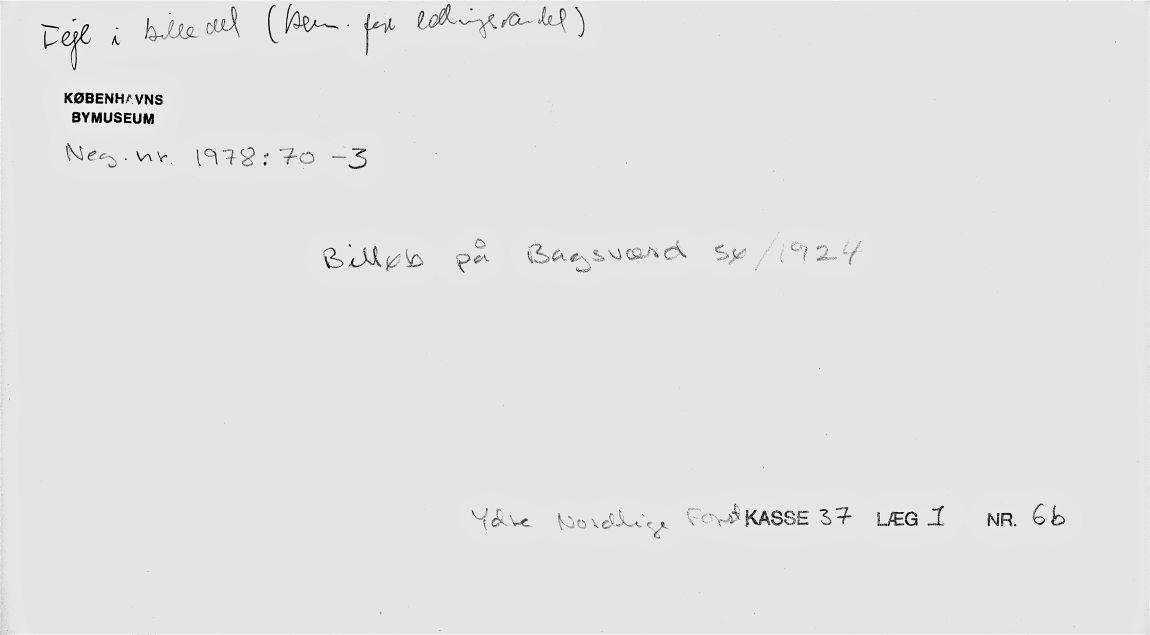 Fejl i billedel (
KØBENHAVNS
BYMUSEUM
Neg. nr. 1978:70 -3
Billøb på Bagsværd sø/1924
Ydre Nordlige Forst KASSE 37 LÆG 1 NR. 6b